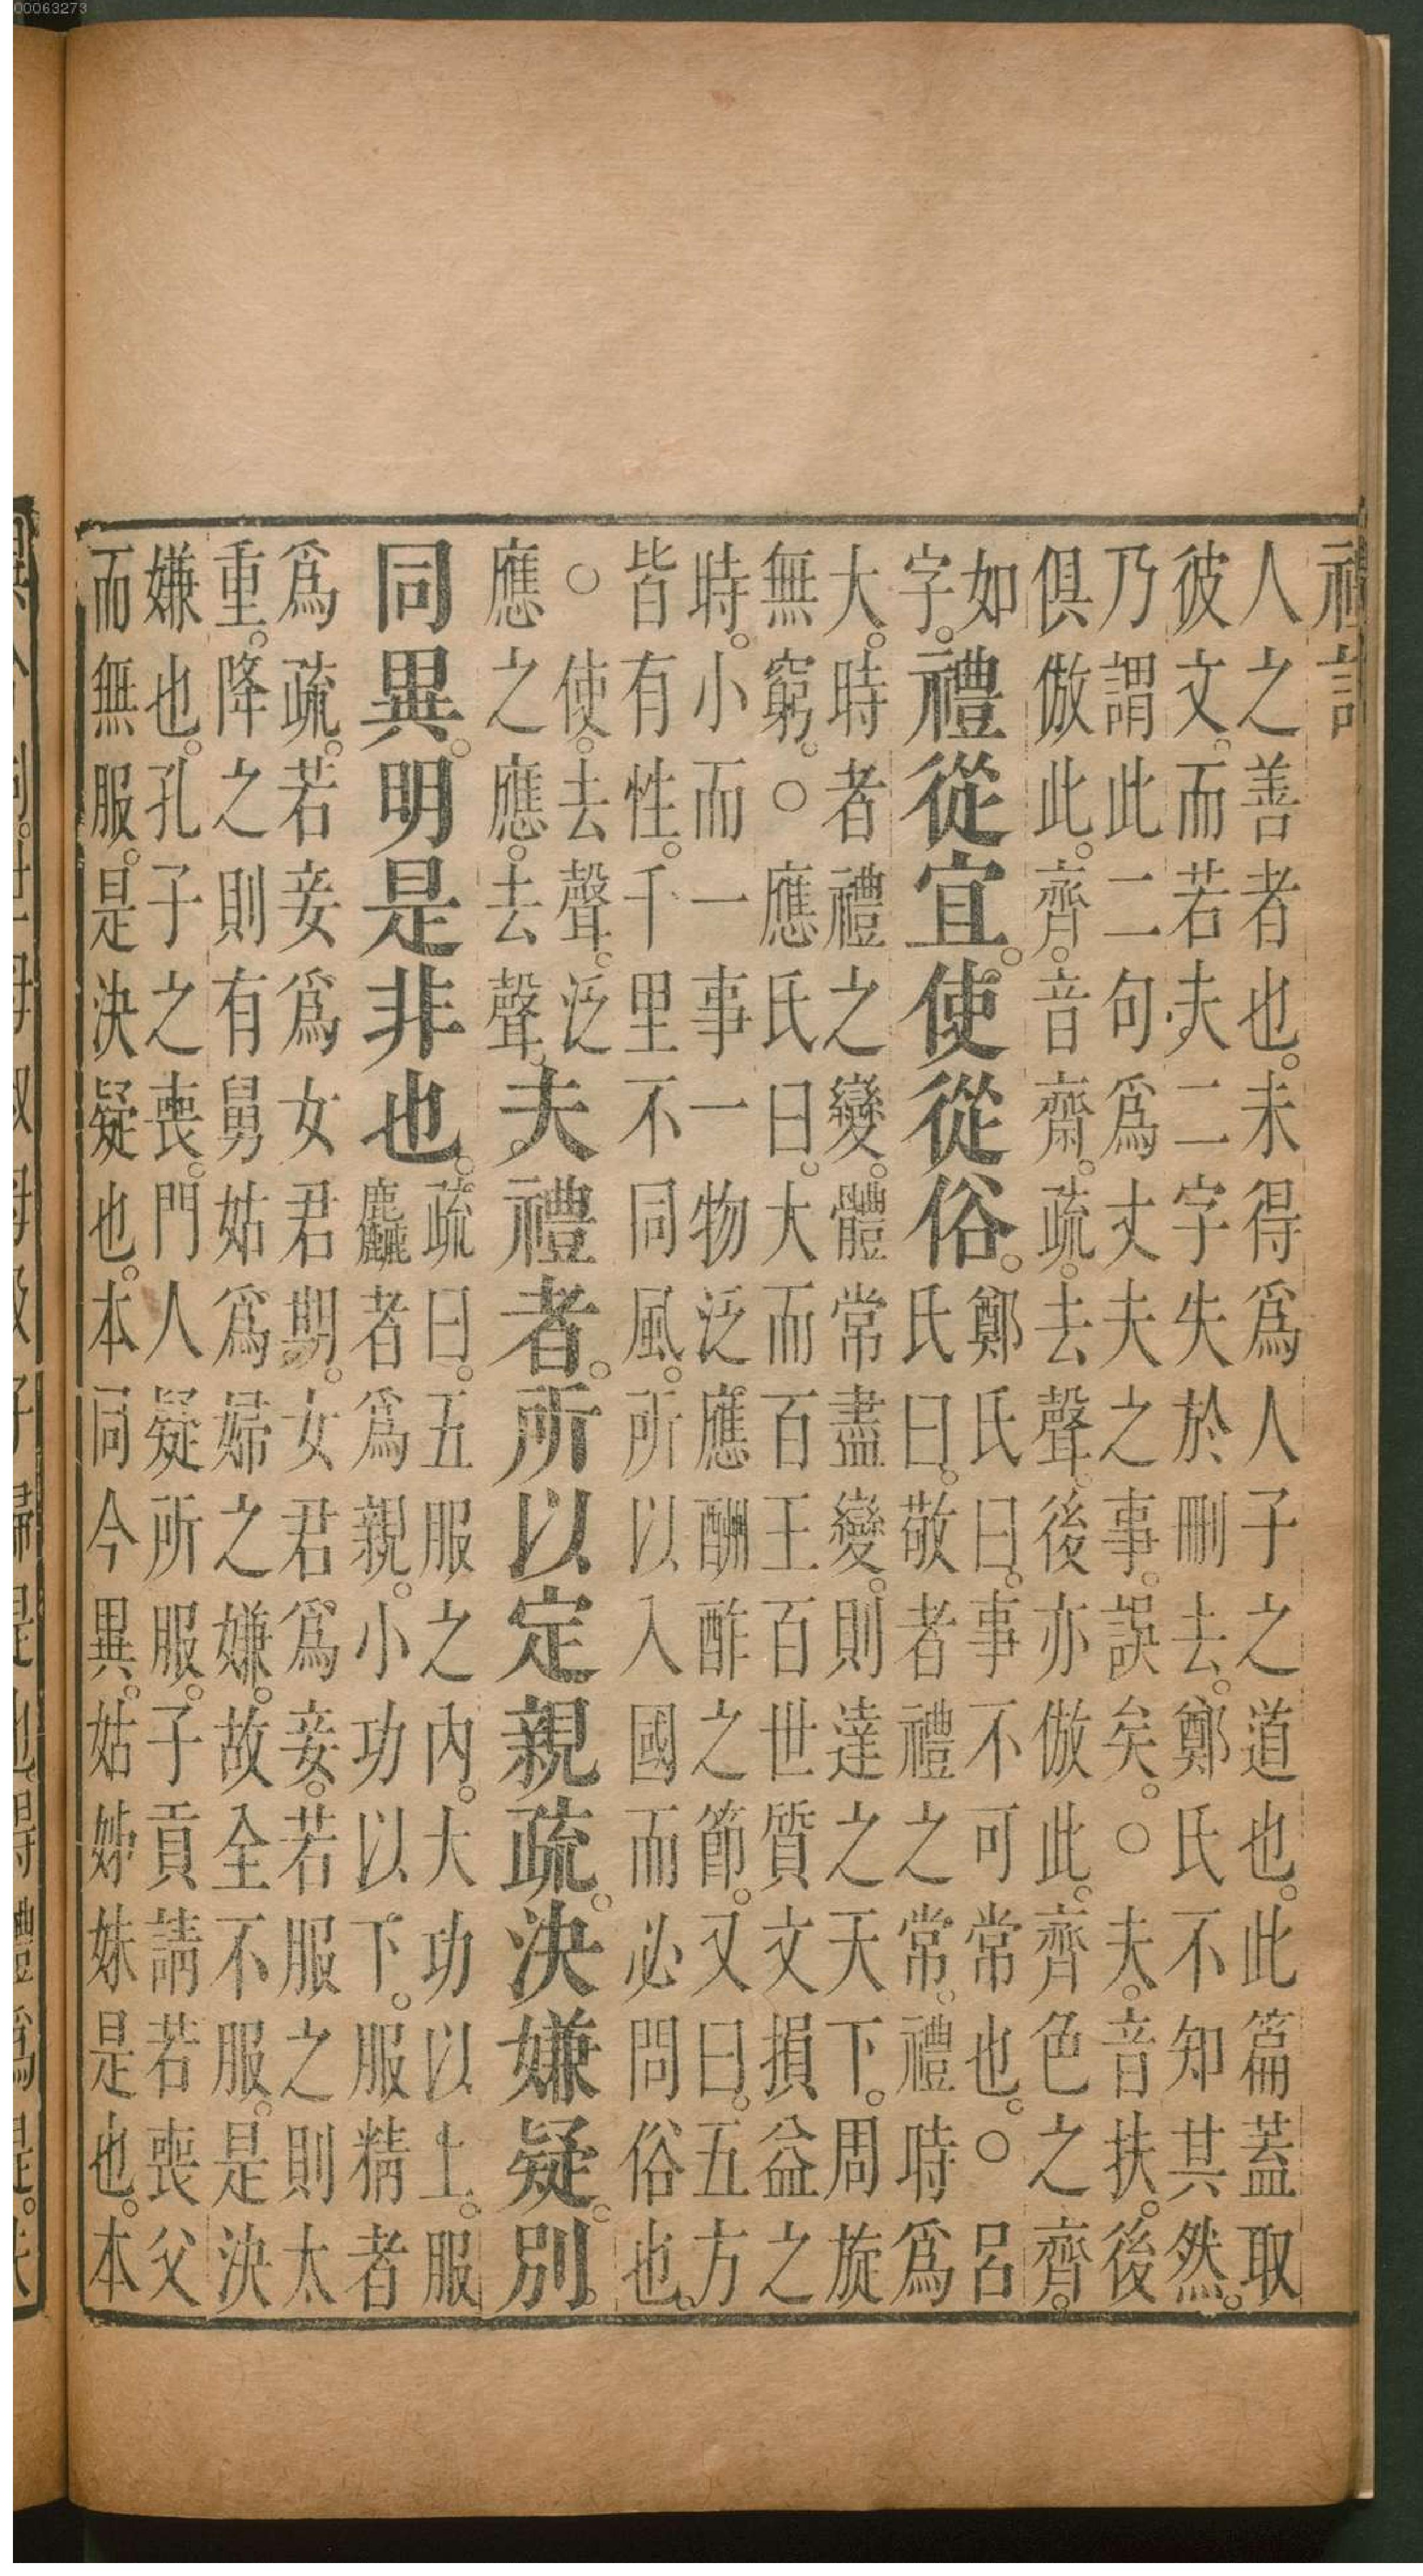 00063273
禮記
人之善者也。未得爲人子之道也。此篇蓋取
彼文。而若夫二字失於刪去。鄭氏不知其然。
乃謂此二句爲丈夫之事。誤矣。○夫。音扶。後
俱倣此。齊。音齋。疏。去聲。後亦倣此。齊色之齊。
如
字。
禮從宜。使從俗。
鄭氏曰。事不可常也。○呂
氏曰。敬者禮之常。禮時爲
大。時者禮之變。體常盡變。則達之天下。周旋
無窮。○應氏曰。大而百王百世質文損益之
時。小而一事一物泛應酬酢之節。又曰。五方
皆有性。千里不同風。所以入國而必問俗也。
○使。去聲。泛
應之應。去聲。
夫禮者。所以定親疏。決嫌疑。別。
同異。明是非也。
疏曰。五服之內。大功以上。服
麤者爲親。小功以下。服精者
爲疏。若妾爲女君期。女君爲妾。若服之則太
重。降之則有舅姑爲婦之嫌。故全不服。是決
嫌也。孔子之喪。門人疑所服。子貢請若喪父
而無服。是決疑也。本同今異。姑姊妹是也。本